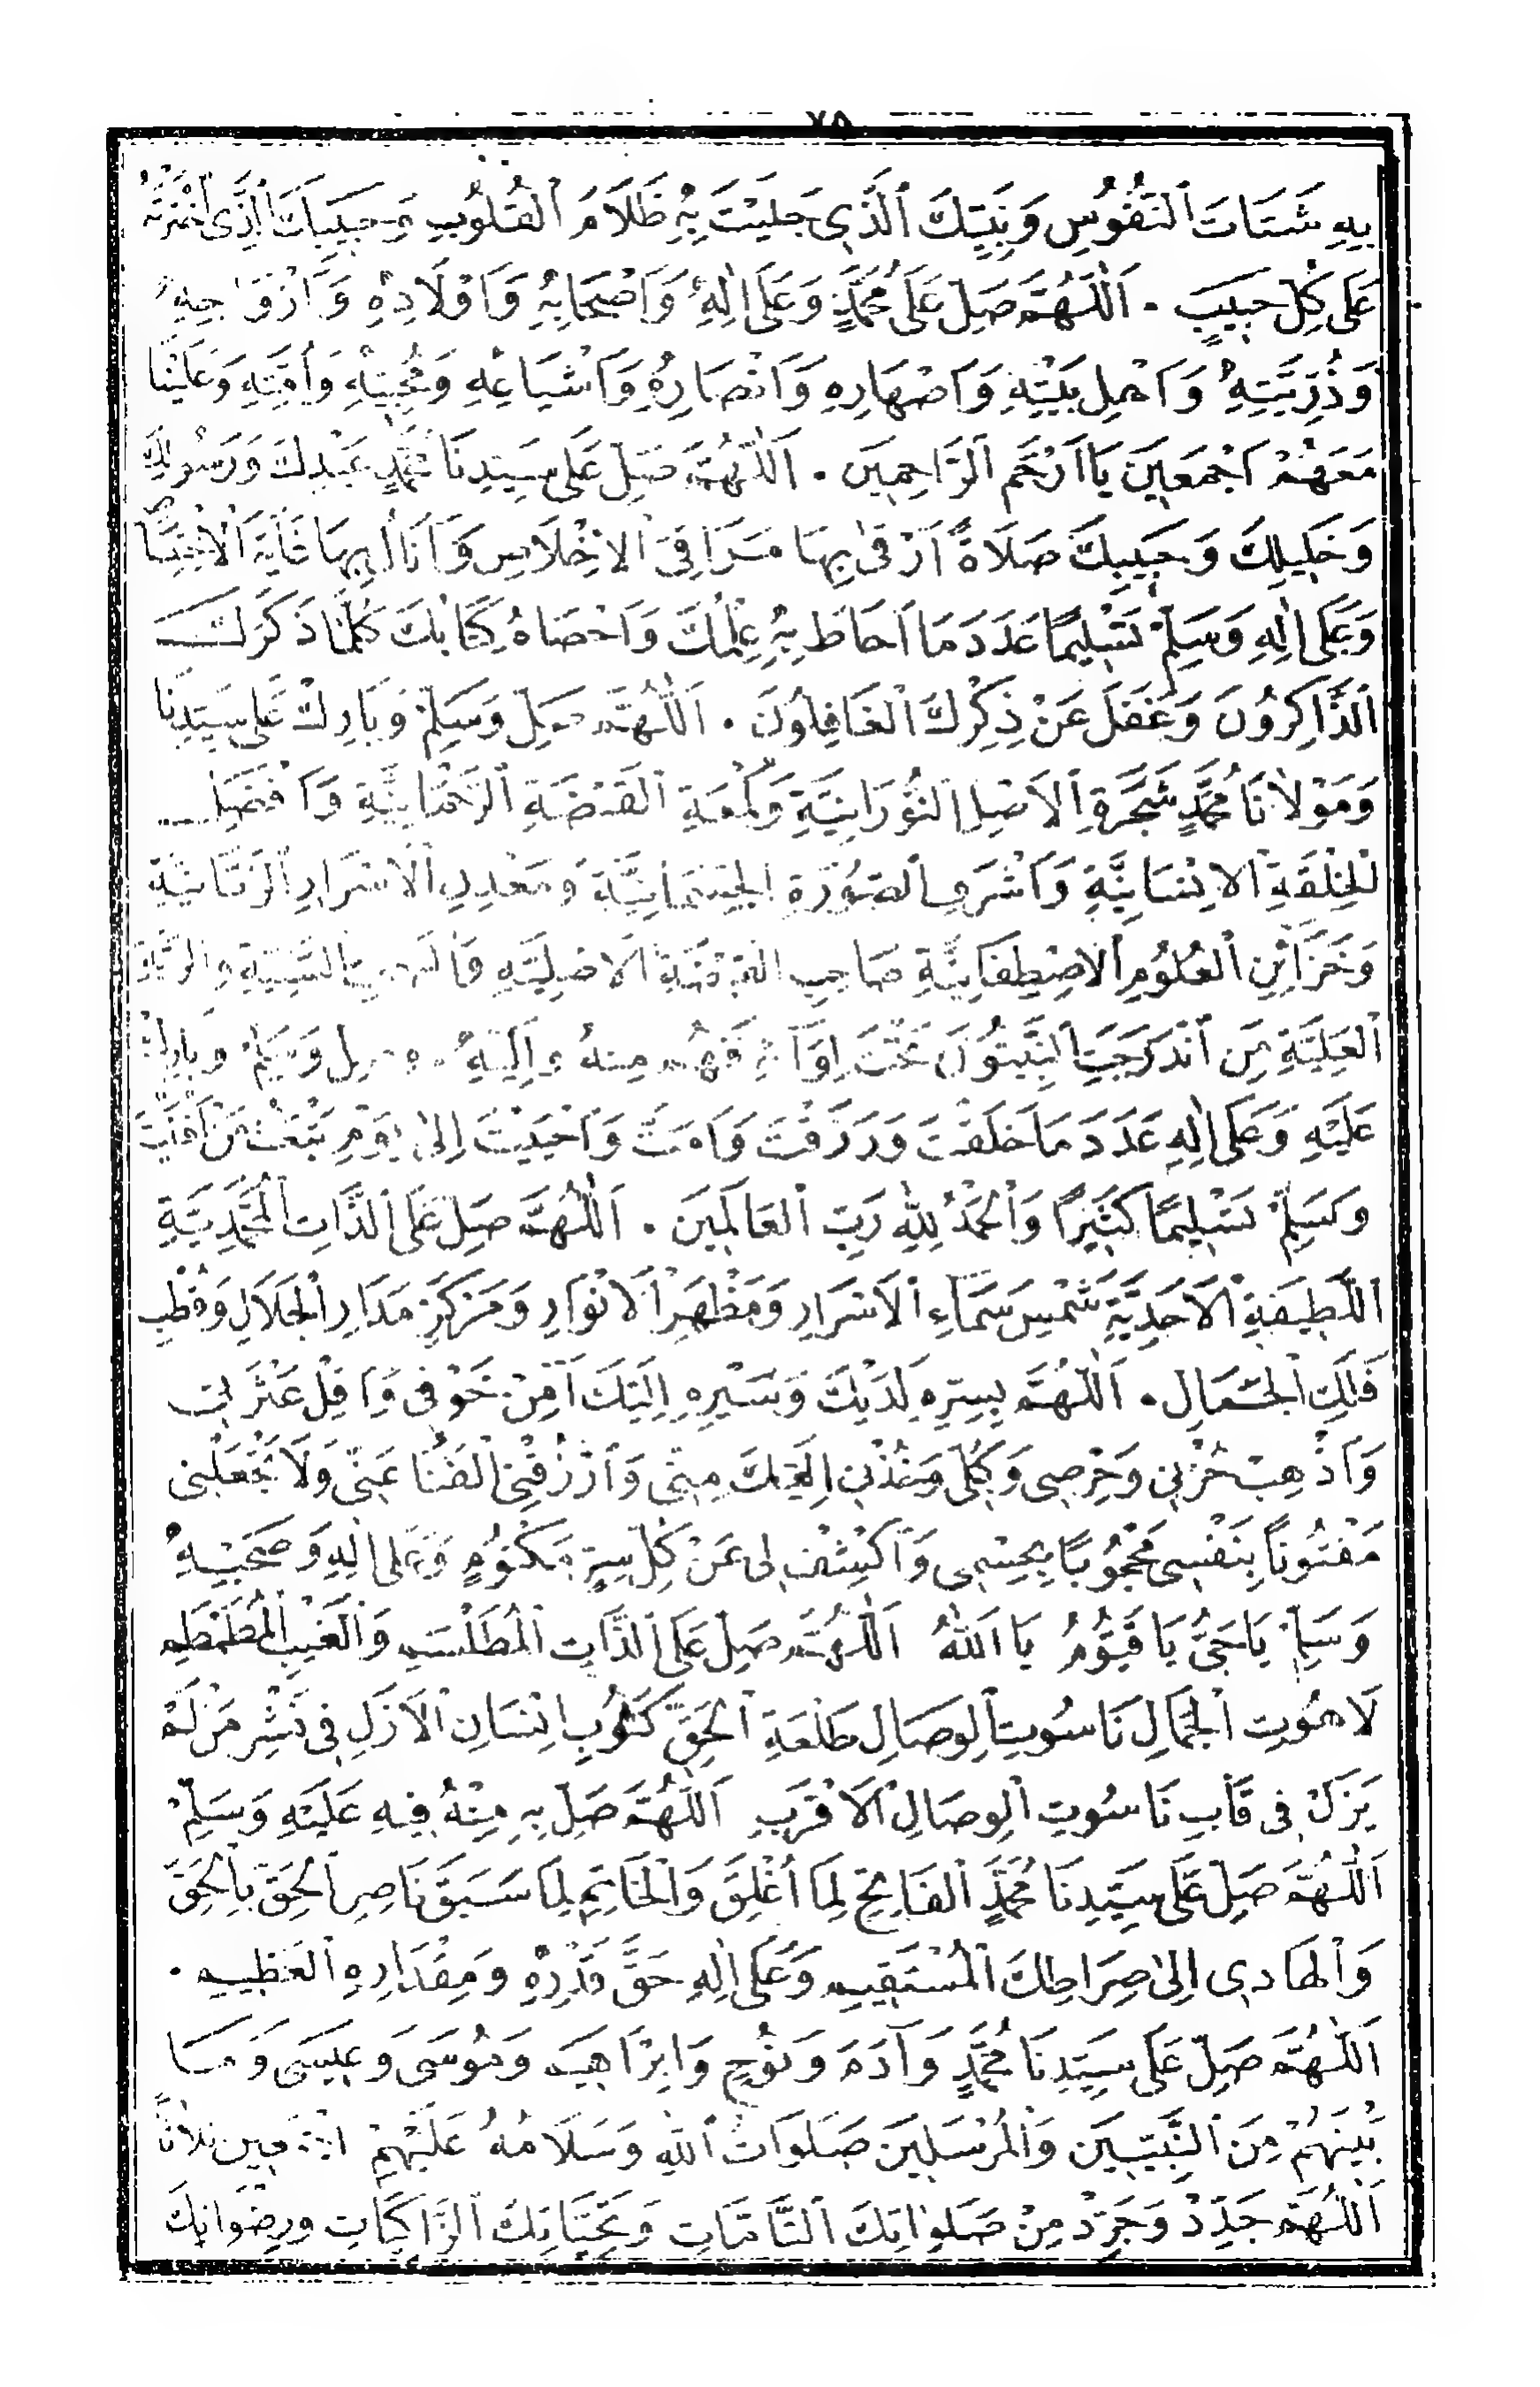 ٧٥
بِهِ شَتَاتَ ٱلنُّفُوسِ وَنَبِيِّكَ ٱلَّذِى جَلَيْتَ بِهِ ظَلَامَ ٱلْقُلُوبِ وَحَبِيبِكَ ٱلَّذِى ٱخْتَرْتَهُ
عَلَى كُلِّ حَبِيبٍ . اَللّٰهُمَّ صَلِّ عَلَى مُحَمَّدٍ وَعَلَى اٰلِهِ وَاَصْحَابِهِ وَاَوْلَادِهِ وَاَزْوَاجِهِ
وَذُرِّيَّتِهِ وَاَهْلِ بَيْتِهِ وَاَصْهَارِهِ وَاَنْصَارِهِ وَاَشْيَاعِهِ وَمُحِبِّيهِ وَاُمَّتِهِ وَعَلَيْنَا
مَعَهُمْ اَجْمَعِينَ يَا اَرْحَمَ ٱلرَّاحِمِينَ . اَللّٰهُمَّ صَلِّ عَلَى سَيِّدِنَا مُحَمَّدٍ عَبْدِكَ وَرَسُولِكَ
وَخَلِيلِكَ وَحَبِيبِكَ صَلَاةً اَرْقىٰ بِهَا مَرَاقِىَ ٱلْاِخْلَاصِ وَاَنَالُ بِهَا غَايَةَ ٱلْاِخْتِصَا
وَعَلَى اٰلِهِ وَسَلِّمْ تَسْلِيمًا عَدَدَ مَا اَحَاطَ بِهِ عِلْمُكَ وَاَحْصَاهُ كِتَابُكَ كُلَّمَا ذَكَرَكَ
ٱلذَّاكِرُونَ وَغَفَلَ عَنْ ذِكْرِكَ ٱلْغَافِلُونَ . اَللّٰهُمَّ صَلِّ وَسَلِّمْ وَبَارِكْ عَلَى سَيِّدِنَا
وَمَوْلَانَا مُحَمَّدٍ شَجَرَةِ ٱلْاَصْلِ ٱلنُّورَانِيَّةِ وَلَمْعَةِ ٱلْقَبْضَةِ ٱلرَّحْمَانِيَّةِ وَاَفْضَلِ
ٱلْخِلْقَةِ ٱلْاِنْسَانِيَّةِ وَاَشْرَفِ ٱلصُّورَةِ ٱلْجِسْمَانِيَّةِ وَمَعْدِنِ ٱلْاَسْرَارِ ٱلرَّبَّانِيَّةِ
وَخَزَائِنِ ٱلْعُلُومِ ٱلْاِصْطِفَائِيَّةِ صَاحِبِ ٱلْقَبْضَةِ ٱلْاَصْلِيَّةِ وَٱلْبَهْجَةِ ٱلسَّنِيَّةِ وَٱلرُّتْبَةِ
ٱلْعَلِيَّةِ مَنِ ٱنْدَرَجَتِ ٱلنَّبِيُّونَ تَحْتَ لِوَآئِهِ فَهُمْ مِنْهُ وَاِلَيْهِ وَصَلِّ وَسَلِّمْ وَبَارِكْ
عَلَيْهِ وَعَلَى اٰلِهِ عَدَدَ مَا خَلَقْتَ وَرَزَقْتَ وَاَمَتَّ وَاَحْيَيْتَ اِلىٰ يَوْمِ تَبْعَثُ مَنْ اَفْنَيْتَ
وَسَلِّمْ تَسْلِيمًا كَثِيرًا وَٱلْحَمْدُ لِلّٰهِ رَبِّ ٱلْعَالَمِينَ . اَللّٰهُمَّ صَلِّ عَلَى ٱلذَّاتِ ٱلْمُحَمَّدِيَّةِ
ٱللَّطِيفَةِ ٱلْاَحَدِيَّةِ شَمْسِ سَمَاءِ ٱلْاَسْرَارِ وَمَظْهَرِ ٱلْاَنْوَارِ وَمَرْكَزِ مَدَارِ ٱلْجَلَالِ وَقُطْبِ
فَلَكِ ٱلْجَمَالِ . اَللّٰهُمَّ بِسِرِّهِ لَدَيْكَ وَسَيْرِهِ اِلَيْكَ اٰمِنْ خَوْفِى وَاَقِلْ عَثْرَتِى
وَاَذْهِبْ حُزْنِى وَحِرْصِى وَكُنْ لِى وَخُذْنِى اِلَيْكَ مِنِّى وَٱرْزُقْنِى ٱلْفَنَا عَنِّى وَلَا تَجْعَلْنِى
مَفْتُونًا بِنَفْسِى مَحْجُوبًا بِحِسِّى وَٱكْشِفْ لِى عَنْ كُلِّ سِرٍّ مَكْتُومٍ وَعَلَى اٰلِهِ وَصَحْبِهِ
وَسَلِّمْ يَا حَىُّ يَا قَيُّومُ يَا اَللّٰهُ اَللّٰهُمَّ صَلِّ عَلَى ٱلذَّاتِ ٱلْمُطَلْسَمِ وَٱلْغَيْبِ ٱلْمُطَمْطَمِ
لَاهُوتِ ٱلْجَمَالِ نَاسُوتِ ٱلْوِصَالِ طَلْعَةِ ٱلْحَقِّ كَثَوْبِ اِنْسَانِ ٱلْاَزَلِ فِى نَشْرِ مَنْ لَمْ
يَزَلْ فِى قَابِ نَاسُوتِ ٱلْوِصَالِ ٱلْاَقْرَبِ اَللّٰهُمَّ صَلِّ بِهِ مِنْهُ فِيهِ عَلَيْهِ وَسَلِّمْ
اَللّٰهُمَّ صَلِّ عَلَى سَيِّدِنَا مُحَمَّدٍ ٱلْفَاتِحِ لِمَا اُغْلِقَ وَٱلْخَاتِمِ لِمَا سَبَقَ نَاصِرِ ٱلْحَقِّ بِٱلْحَقِّ
وَٱلْهَادِى اِلىٰ صِرَاطِكَ ٱلْمُسْتَقِيمِ وَعَلَى اٰلِهِ حَقَّ قَدْرِهِ وَمِقْدَارِهِ ٱلْعَظِيمِ .
اَللّٰهُمَّ صَلِّ عَلَى سَيِّدِنَا مُحَمَّدٍ وَآدَمَ وَنُوحٍ وَاِبْرَاهِيمَ وَمُوسَى وَعِيسَى وَمَا
بَيْنَهُمْ مِنَ ٱلنَّبِيِّينَ وَٱلْمُرْسَلِينَ صَلَوَاتُ ٱللّٰهِ وَسَلَامُهُ عَلَيْهِمْ اَجْمَعِينَ ثلاثاً
اَللّٰهُمَّ جَدِّدْ وَجَرِّدْ مِنْ صَلَوَاتِكَ ٱلتَّامَّاتِ وَتَحِيَّاتِكَ ٱلزَّاكِيَاتِ وَرِضْوَانِكَ